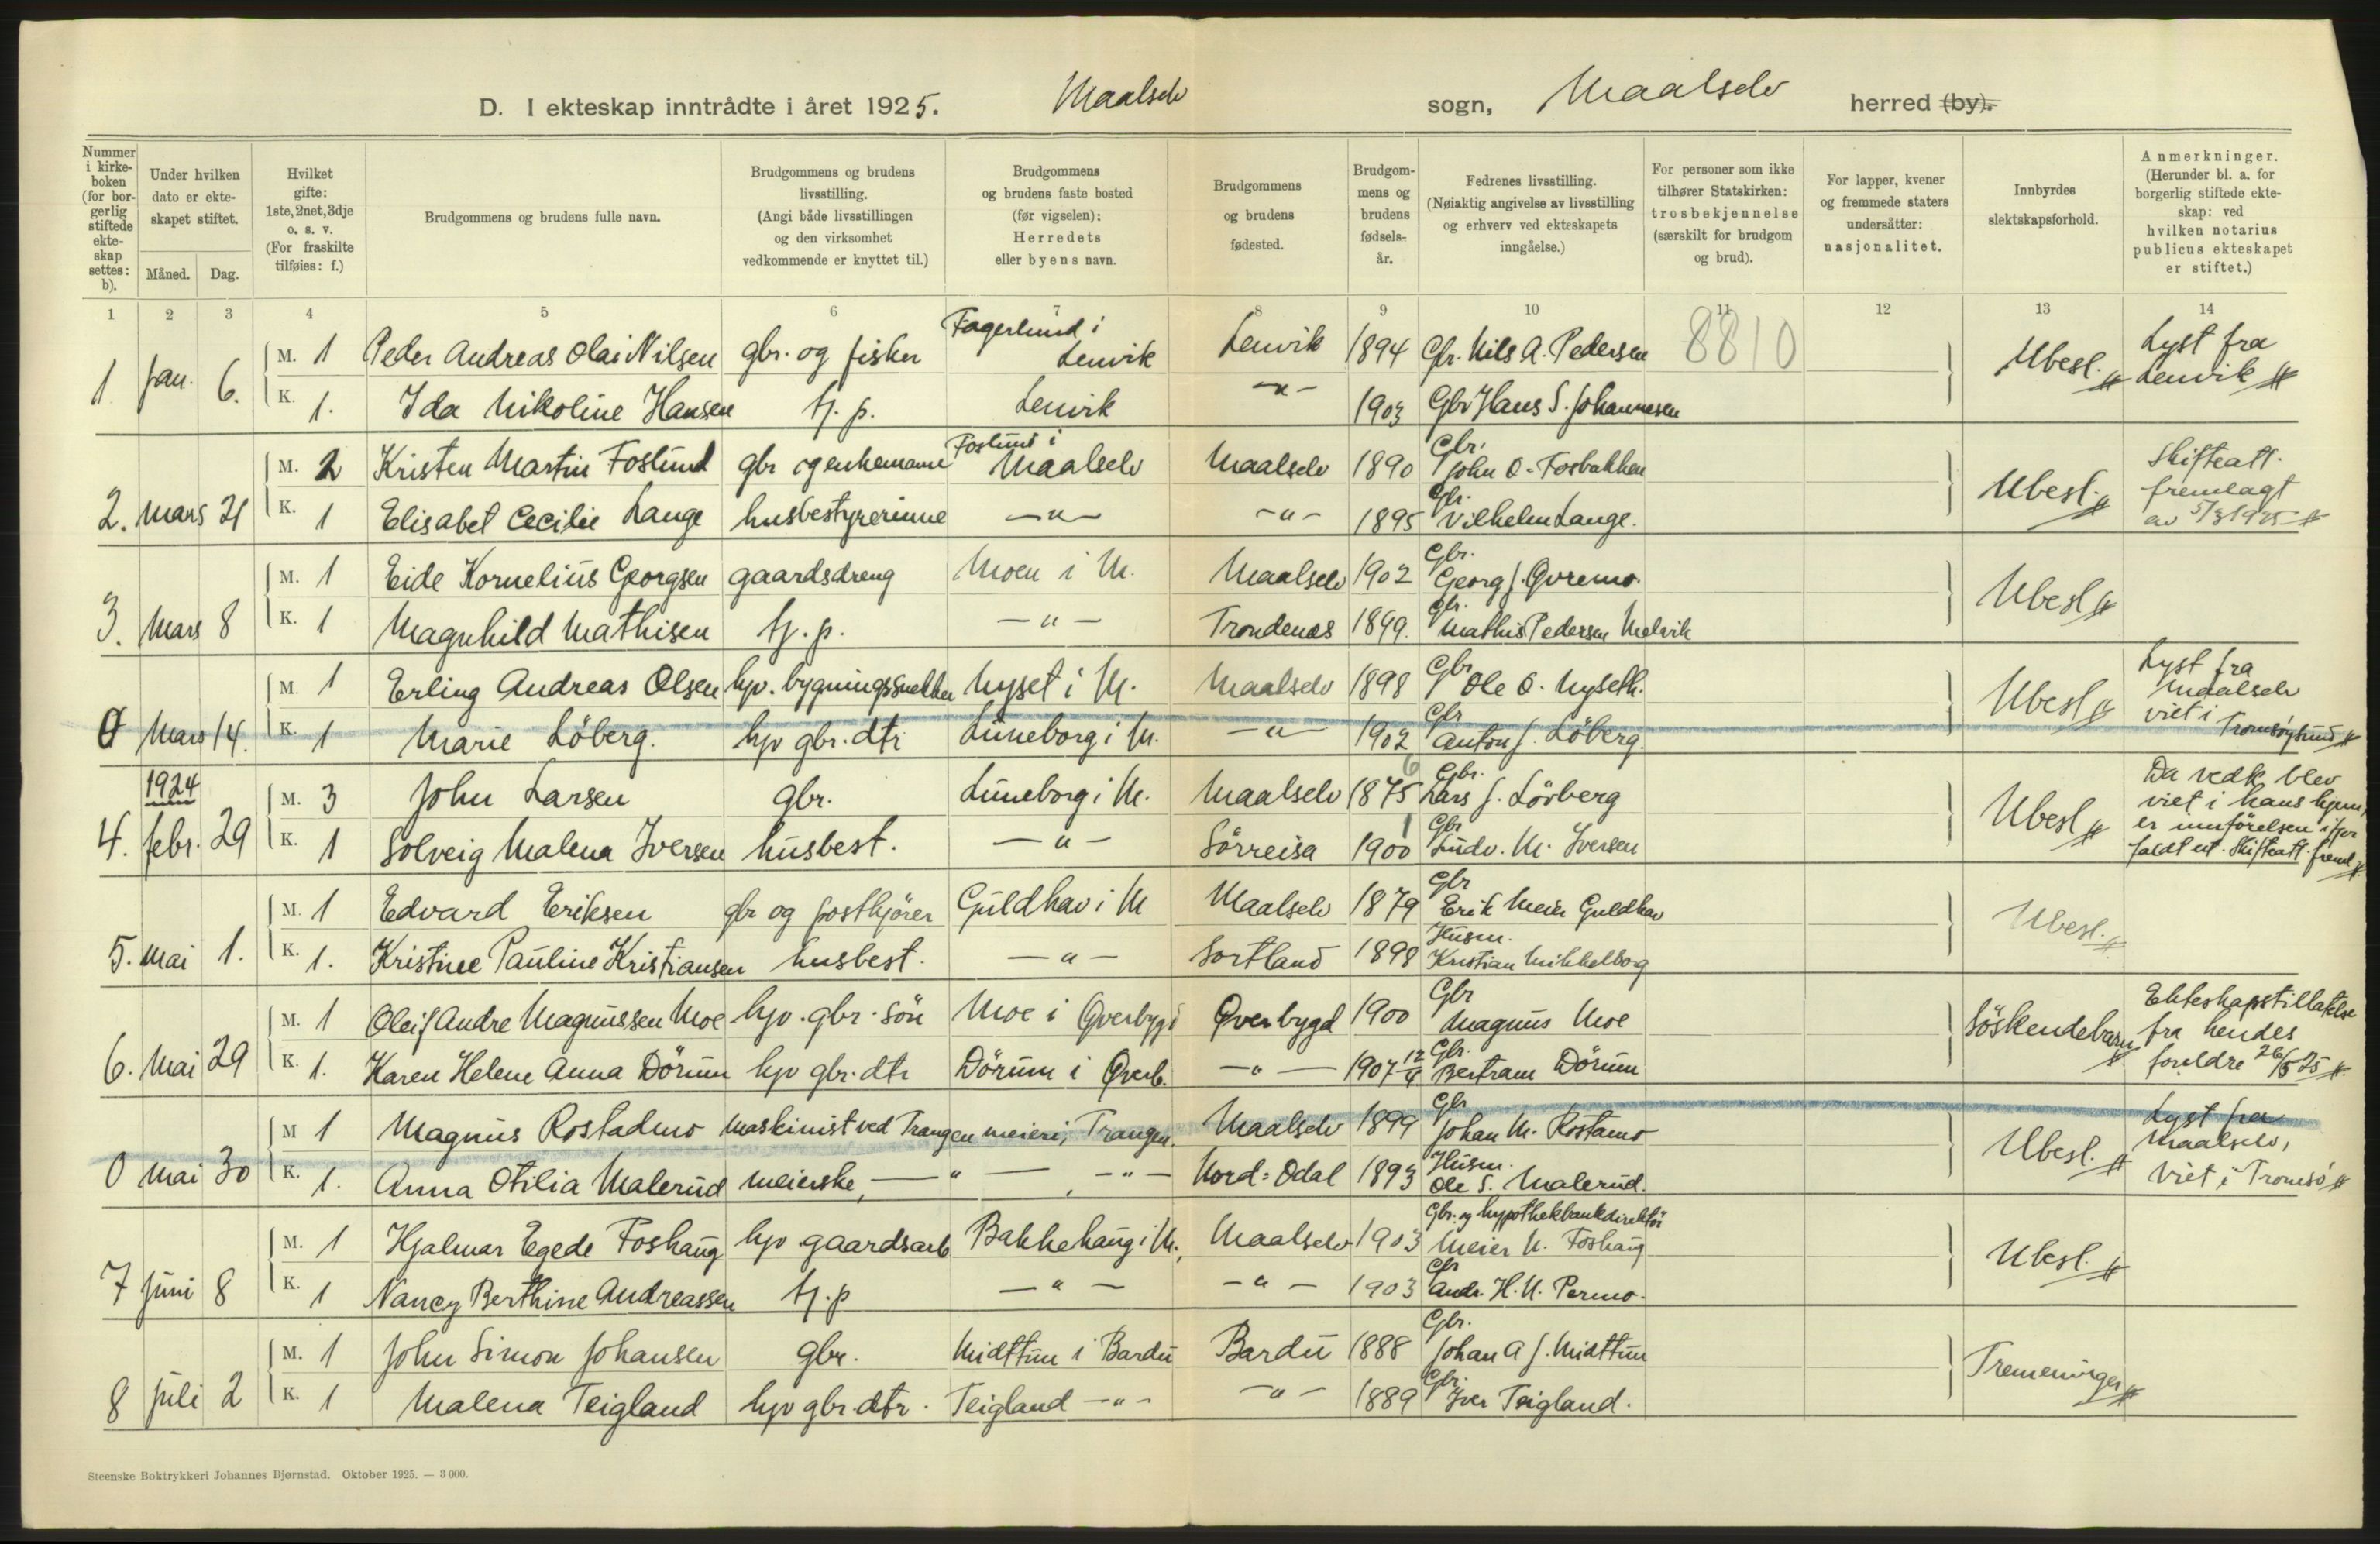 D. I ekteskap inntrådte i året 1925. Maalselv sogn, Maalselv herred (by).
Nummer i kirkeboken (for borgerlig stiftede ekteskap settes: b).
Under hvilken dato er ekteskapet stiftet.
Måned. Dag.
Hvilket gifte: 1ste, 2net, 3dje o. s. v. (For fraskilte tilføies: f.)
Brudgommens og brudens fulle navn.
Brudgommens og brudens livsstilling. (Angi både livsstillingen og den virksomhet vedkommende er knyttet til.)
Brudgommens og brudens faste bosted (før vigselen): Herredets eller byens navn.
Brudgommens og brudens fødested.
Brudgommens og brudens fødselsår.
Fedrenes livsstilling. (Nøiaktig angivelse av livsstilling og erhverv ved ekteskapets inngåelse.)
For personer som ikke tilhører Statskirken: trosbekjennelse (særskilt for brudgom og brud).
For lapper, kvener og fremmede staters undersåtter: nasjonalitet.
Innbyrdes slektskapsforhold.
Anmerkninger. (Herunder bl. a. for borgerlig stiftede ekteskap: ved hvilken notarius publicus ekteskapet er stiftet.)
1 2 3 4 5 6 7 8 9 10 11 12 13 14
8810
M. 1 Peder Andreas Olai Nilsen gbr. og fisker Fagerlund i Lenvik Lenvik 1894 Gbr. Nils A. Pedersen
1 Jan. 6. K. 1. Ida Nikoline Hansen tj. p. Lenvik —"— 1903 Gbr Hans S. Johannesen Ubesl. Lyst fra Lenvik
M. 2 Kristen Martin Foslund gbr og enkemann Foslund i Maalselv Maalselv 1890 Gbr. John O. Fosbakken
2. Mars 21 K. 1 Elisabet Cecilie Lange husbestyrerinne —"— —"— 1895 Gbr. Vilhelm Lange. Ubesl. Skifteatt. fremlagt av 5/3 1925
M. 1 Eide Kornelius Georgsen gaardsdreng Moen i M. Maalselv 1902 Gbr. Georg J. Øvremo
3. Mars 8 K. 1 Magnhild Mathisen tj. p. —"— Trondenes 1899. Gbr. Mathis Pedersen Melvik Ubesl
M. 1 Erling Andreas Olsen hjv. bygningssnekker Nyset i M. Maalselv 1898 Gbr Ole O. Nyseth.
0 Mars 14. K. 1 Marie Löberg. hjv gbr. dtr Luneborg i M. —"— 1902 Gbr Anton J. Löberg. Ubesl Lyst fra Maalselv viet i Tromsøysund
1924
M. 3 John Larsen gbr. Luneborg i M. Maalselv 1875 6 Gbr. Lars J. Lövberg
4. febr. 29 K. 1 Solveig Malena Iversen husbest. —"— Sörreisa 1900 1 Gbr Ludv. M. Iversen Ubesl Da vedk. blev viet i hans hjem, er innförelsen ifjor faldt ut. Skifteatt. freml.
M. 1 Edvard Eriksen gbr og postkjörer Guldhav i M Maalselv 1879 Gbr Erik Meier Guldhav
5. Mai 1. K. 1. Kristine Pauline Kristiansen husbest. —"— Sortland 1898 Husm. Kristian Mikkelborg Ubesl.
M. 1 Oleif Andre Magnussen Moe hjv. gbr. sön Moe i Øverbygd Øverbygd 1900 Gbr Magnus Moe
6. Mai 29 K. 1. Karen Helene Anna Dörum hjv gbr. dtr Dörum i Øverb. —"— 1907 12/4 Gbr. Bertram Dörum Söskendebarn Ekteskapstillatelse fra hendes foreldre 26/5 25
M 1 Magnus Rostadmo maskinist ved Trangen meieri, Trangen. Maalselv 1899 Gbr Johan M. Rostamo
0 Mai 30 K. 1. Anna Otilia Malerud meierske, —"— , —"— Nord-Odal 1893 Husm. Ole S. Malerud. Ubesl. Lyst fra Maalselv, Viet i Tromsö
M. 1 Hjalmar Egede Foshaug hjv gaardsarb Bakkehaug i M., Maalselv 1903 Gbr. og hypothekbankdirektör Meier N. Foshaug
7 Juni 8 K. 1 Nancy Berthine Andreassen tj. p —"— —"— 1903 Gbr Andr. H. U. Permo. Ubesl.
M. 1 John Simon Johansen gbr. Midttun i Bardu Bardu 1888 Gbr. Johan A J. Midttun
8 Juli 2 K. 1 Malena Teigland hjv gbr. dtr. Teigland —"— —"— 1889 Gbr. Iver Teigland. Tremeninger
Steenske Boktrykkeri Johannes Bjørnstad. Oktober 1925. — 3000.